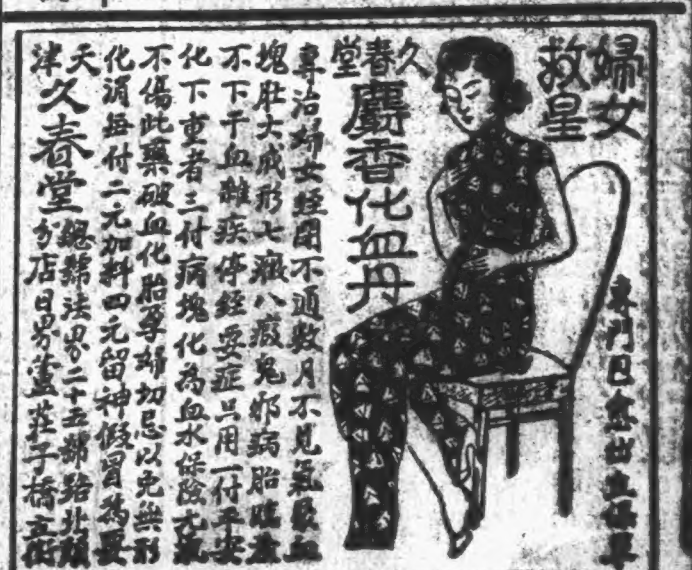 婦女
救星
久春堂
麝香化血丹
專治婦女經閉不通數月不見氣裹血
塊肚大成形七癥八瘕鬼邪病胎臌
不下干血癆疾停經要症只用一付平安
化下重者三付病塊化為血水保險元氣
不傷此藥破血化胎孕婦切忌以免無形
化消每付二元加料四元留神假冒為要
天津
久春堂
總號法界二十五號路北頭
分店日界蘆莊子橋立街